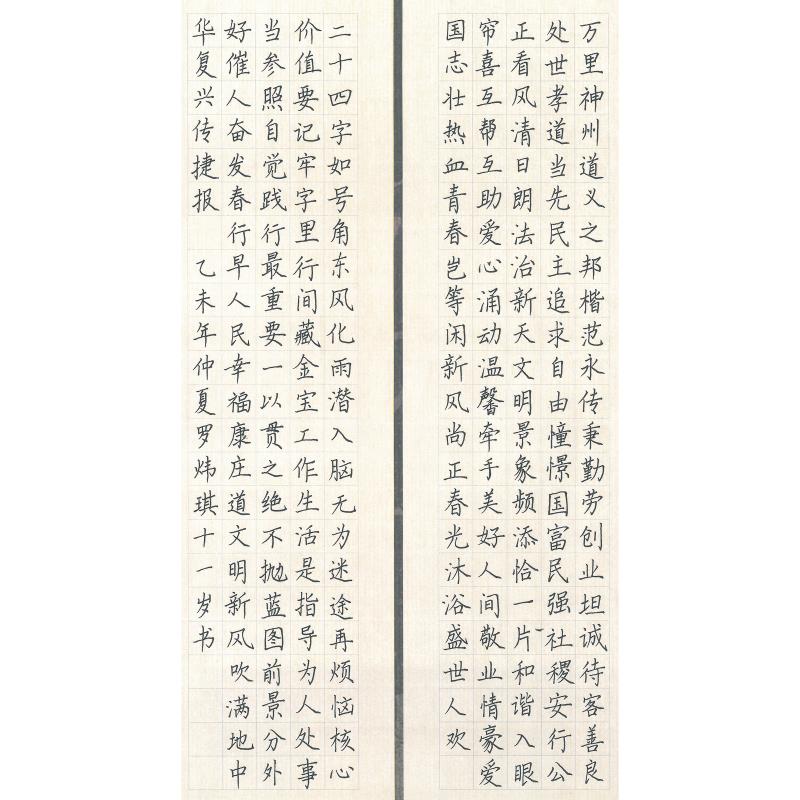 万里神州道义之邦楷范永传秉勤劳创业坦诚待客善良
处世孝道当先民主追求自由憧憬国富民强社稷安行公
正看风清日朗法治新天文明景象频添恰一片和谐入眼
帘喜互帮互助爱心涌动温馨牵手美好人间敬业情豪爱
国志壮热血青春岂等闲新风尚正春光沐浴盛世人欢
二十四字如号角东风化雨潜入脑无为迷途再烦恼核心
价值要记牢字里行间藏金宝工作生活是指导为人处事
当参照自觉践行最重要一以贯之绝不抛蓝图前景分外
好催人奋发春行早人民幸福康庄道文明新风吹满地中
华复兴传捷报 乙未年仲夏罗炜琪十一岁书